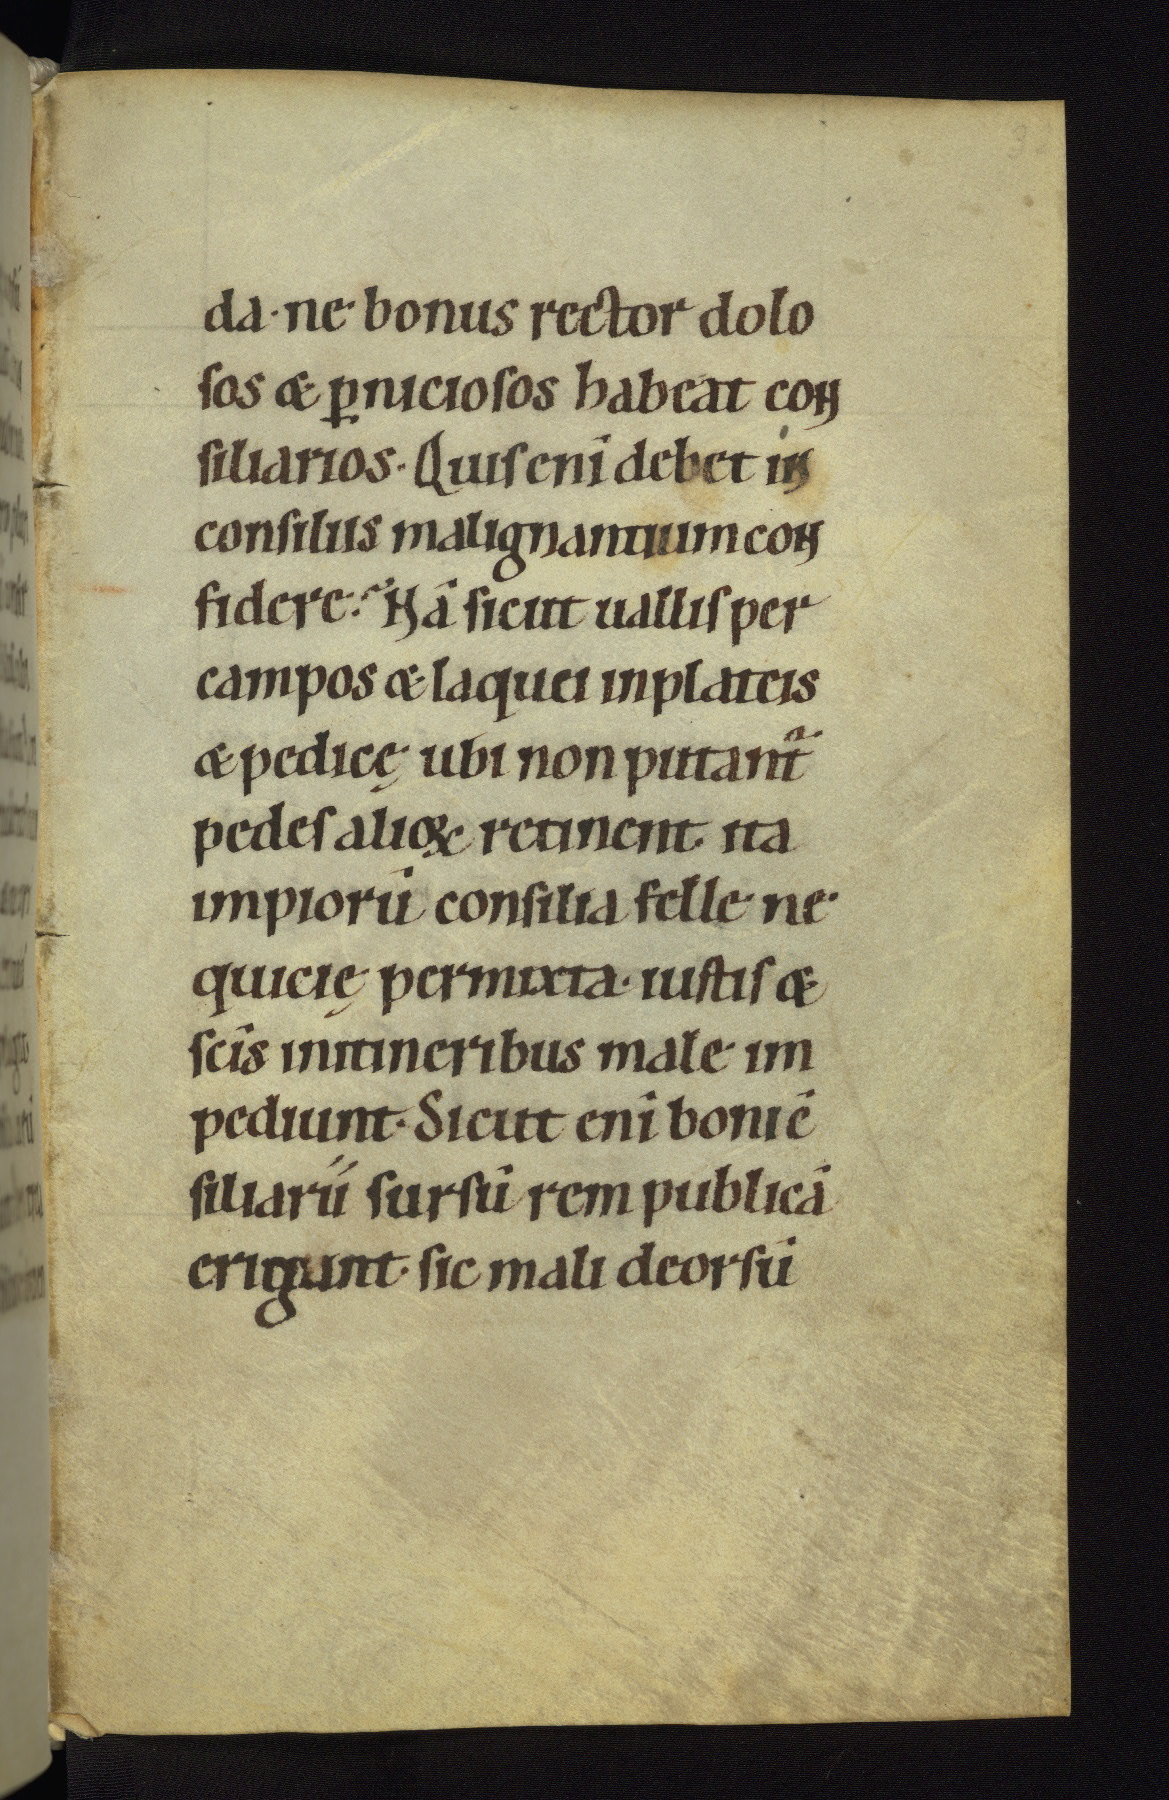 da· ne bonus rector dolo
ſos & ꝑnicioſos habeat coN
ſiliarios· Quiſ eni̅ debet iN
conſiliis malignantium coN
fidere? Nā ſicut ualliſ per
campos & laquei in plateis
& pedicę ubi non putant᷑
pedeſ alioꝝ retinent· ita
impiorū conſilia felle ne
quicię permixta· iuſtiſ &
ſc̅is in itineribus male im
pediunt· Sicut eni̅ boni c̅
ſiliarii̅ ſurſū rem publicā
erigunt· ſic mali deorſū